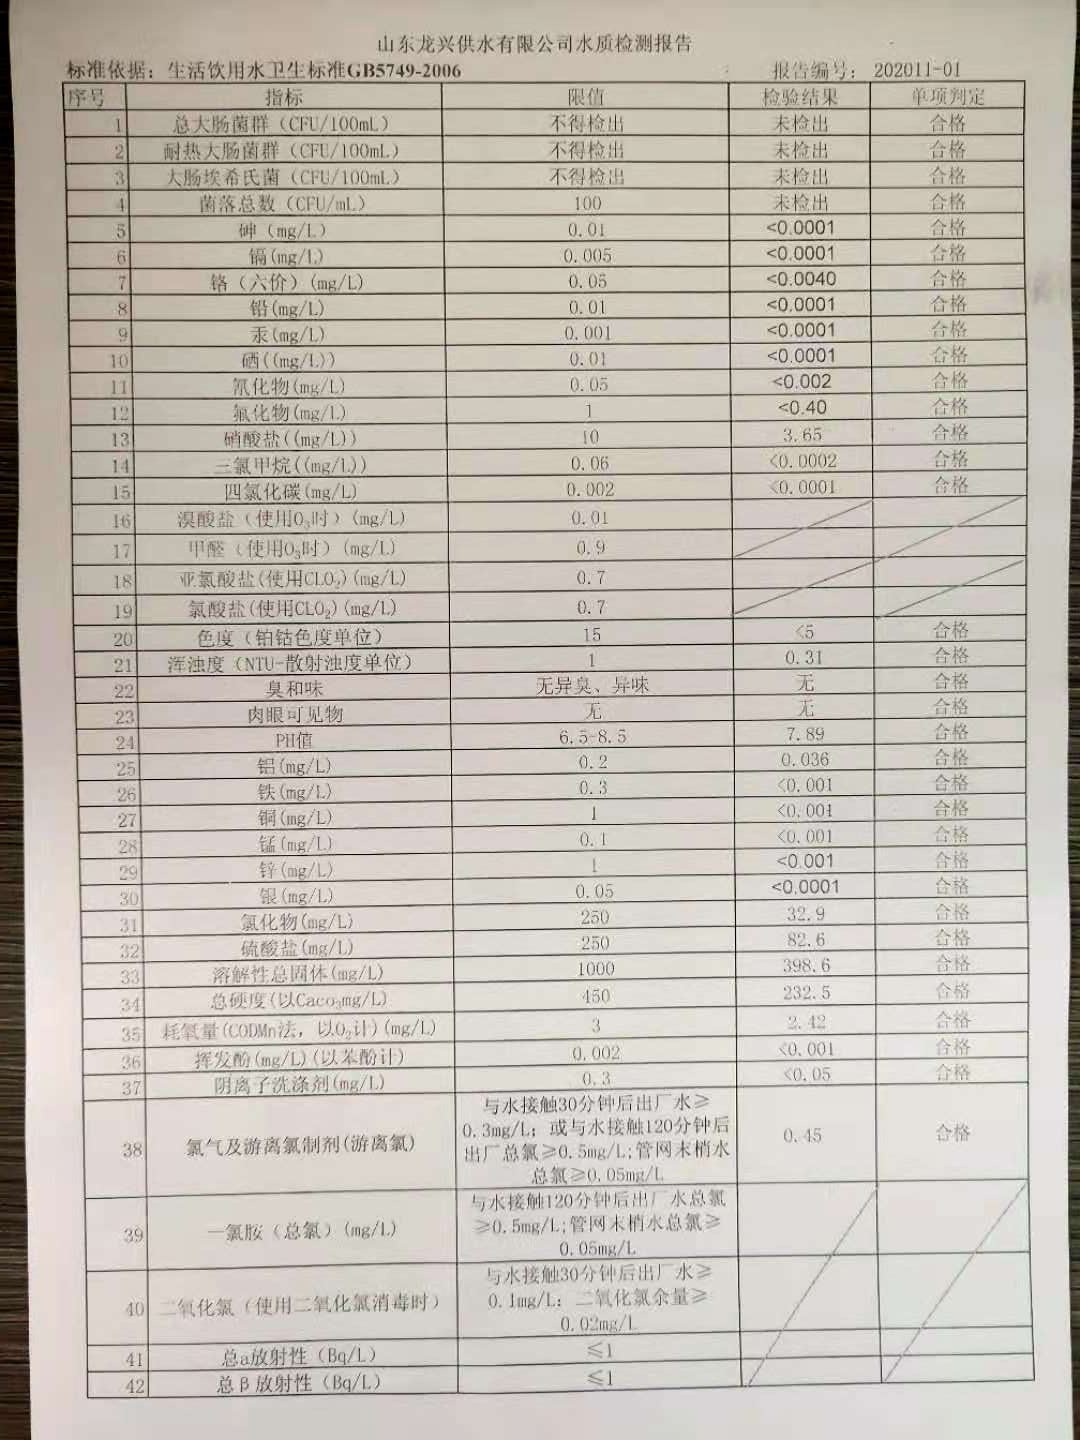 山东龙兴供水有限公司水质检测报告
标准依据：生活饮用水卫生标准GB5749-2006 报告编号： 202011-01
序号 指标 限值 检验结果 单项判定
1 总大肠菌群（CFU/100mL） 不得检出 未检出 合格
2 耐热大肠菌群（CFU/100mL） 不得检出 未检出 合格
3 大肠埃希氏菌（CFU/100mL） 不得检出 未检出 合格
4 菌落总数（CFU/mL） 100 未检出 合格
5 砷（mg/L） 0.01 <0.0001 合格
6 镉(mg/L) 0.005 <0.0001 合格
7 铬（六价）(mg/L) 0.05 <0.0040 合格
8 铅(mg/L) 0.01 <0.0001 合格
9 汞(mg/L) 0.001 <0.0001 合格
10 硒((mg/L)) 0.01 <0.0001 合格
11 氰化物(mg/L) 0.05 <0.002 合格
12 氟化物(mg/L) 1 <0.40 合格
13 硝酸盐((mg/L)) 10 3.65 合格
14 三氯甲烷((mg/L)) 0.06 <0.0002 合格
15 四氯化碳(mg/L) 0.002 <0.0001 合格
16 溴酸盐（使用O₃时）(mg/L) 0.01
17 甲醛（使用O₃时）(mg/L) 0.9
18 亚氯酸盐(使用CLO₂)(mg/L) 0.7
19 氯酸盐(使用CLO₂)(mg/L) 0.7
20 色度（铂钴色度单位） 15 <5 合格
21 浑浊度（NTU-散射浊度单位） 1 0.31 合格
22 臭和味 无异臭、异味 无 合格
23 肉眼可见物 无 无 合格
24 PH值 6.5-8.5 7.89 合格
25 铝(mg/L) 0.2 0.036 合格
26 铁(mg/L) 0.3 <0.001 合格
27 铜(mg/L) 1 <0.001 合格
28 锰(mg/L) 0.1 <0.001 合格
29 锌(mg/L) 1 <0.001 合格
30 银(mg/L) 0.05 <0.0001 合格
31 氯化物(mg/L) 250 32.9 合格
32 硫酸盐(mg/L) 250 82.6 合格
33 溶解性总固体(mg/L) 1000 398.6 合格
34 总硬度(以Caco₃mg/L) 450 232.5 合格
35 耗氧量(CODMn法，以O₂计)(mg/L) 3 2.42 合格
36 挥发酚(mg/L)(以苯酚计) 0.002 <0.001 合格
37 阴离子洗涤剂(mg/L) 0.3 <0.05 合格
与水接触30分钟后出厂水≥
0.3mg/L；或与水接触120分钟后
38 氯气及游离氯制剂(游离氯) 0.45 合格
出厂总氯≥0.5mg/L;管网末梢水
总氯≥0.05mg/L
与水接触120分钟后出厂水总氯
39 一氯胺（总氯）(mg/L) ≥0.5mg/L;管网末梢水总氯≥
0.05mg/L
与水接触30分钟后出厂水≥
40 二氧化氯（使用二氧化氯消毒时） 0.1mg/L；二氧化氯余量≥
0.02mg/L
41 总a放射性（Bq/L） ≤1
42 总β放射性（Bq/L） ≤1